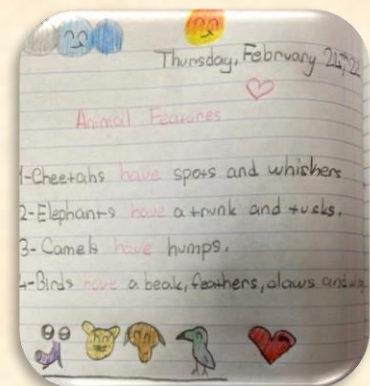 Thursday, February 24th, 22
Animal Features
1-Cheetahs have spots and whishers
2-Elephants have a trunk and tusks.
3-Camels have humps.
4-Birds have a beak, feathers, claws and